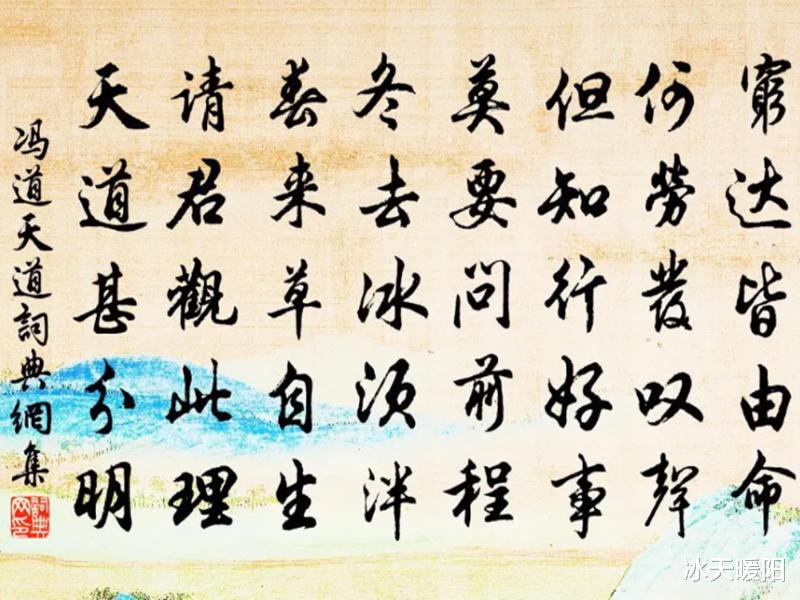 窮达皆由命
何勞發叹聲
但知行好事
莫要问前程
冬去冰须泮
春来草自生
请君觀此理
天道甚分明
冯道天道詞典網集
冰天暖阳